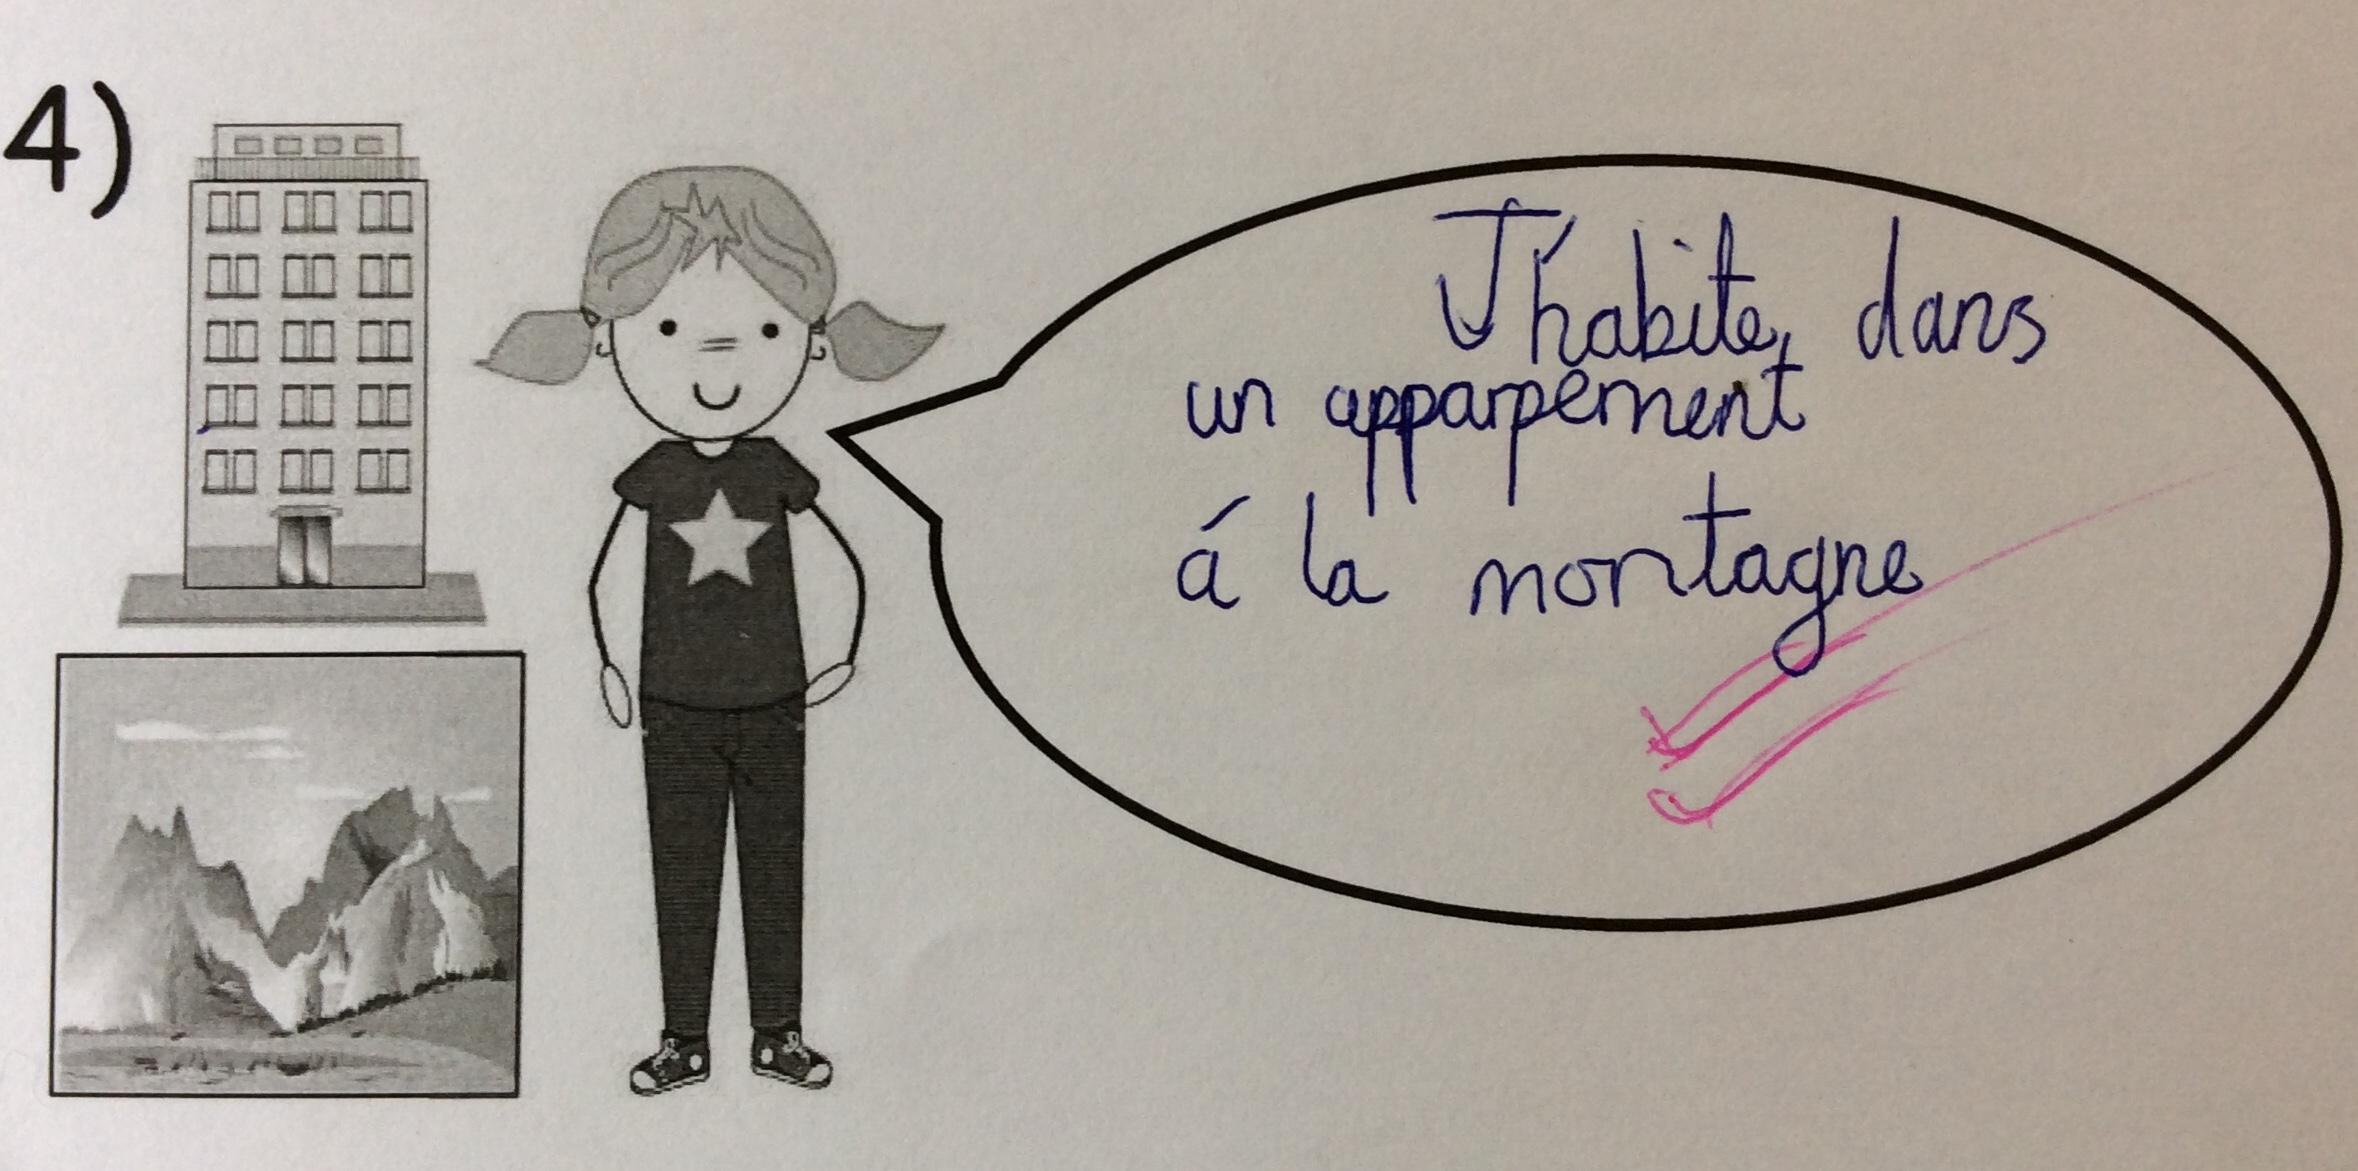 4)
J'habite dans
un apparpement
á la montagne